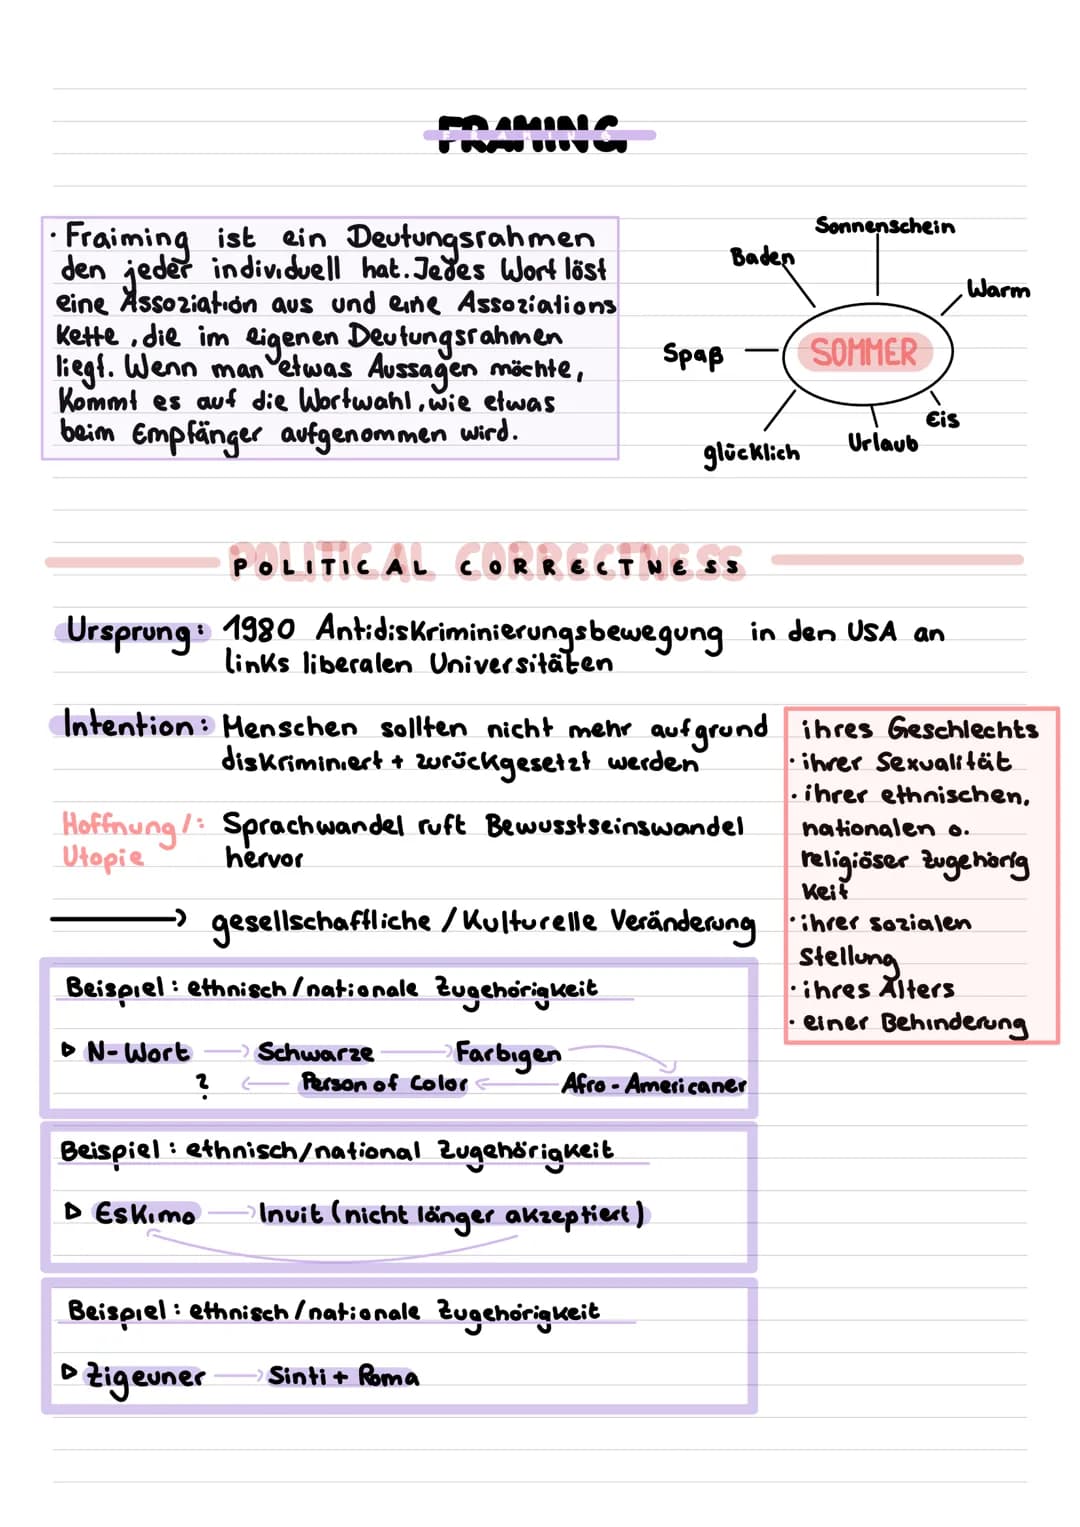 FRAMING
· Fraiming ist ein Deutungsrahmen
den jeder individuell hat. Jedes Wort löst
eine Assoziation aus und eine Assoziations
Kette, die im eigenen Deutungsrahmen
liegt. Wenn man etwas Aussagen möchte,
Kommt es auf die Wortwahl, wie etwas
beim Empfänger aufgenommen wird.
Sonnenschein
Baden
Warm
SOMMER
Spaß
Eis
Urlaub
glücklich
POLITICAL CORRECTNESS
Ursprung: 1980 Antidiskriminierungsbewegung in den USA an
links liberalen Universitäten
Intention: Menschen sollten nicht mehr aufgrund
diskriminiert + zurückgesetzt werden
ihres Geschlechts
· ihrer Sexualität
· ihrer ethnischen,
nationalen o.
religiöser Zugehörig
Keit
· ihrer sozialen
Stellung
· ihres Alters
· einer Behinderung
Hoffnung/: Sprachwandel ruft Bewusstseinswandel
Utopie hervor
→ gesellschaftliche / Kulturelle Veränderung
Beispiel: ethnisch/nationale Zugehörigkeit
▷ N-Wort → Schwarze → Farbigen
? ← Person of Color ← Afro-Americaner
Beispiel: ethnisch/national Zugehörigkeit
▷ Eskimo → Inuit (nicht länger akzeptiert)
Beispiel: ethnisch/nationale Zugehörigkeit
▷ Zigeuner → Sinti + Roma